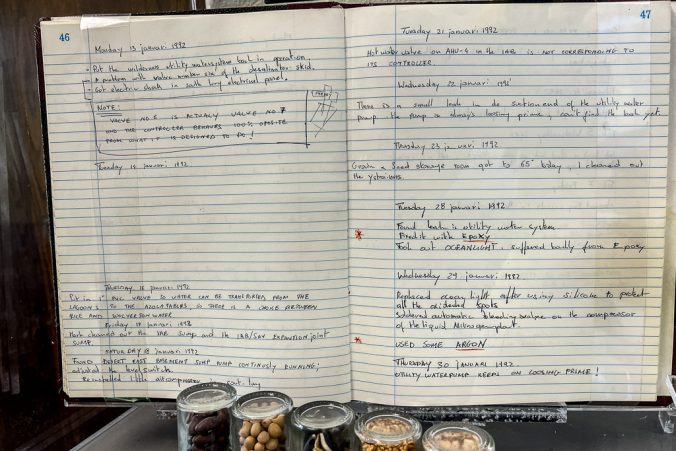 46
Monday 13 januari 1992
- Put the wilderness utility watersystem back in operation.
- A problem with water on the desalinator skid.
- Got electric shock in south lung electrical panel.
NOTE:
VALVE NO. 6 IS ACTUALY VALVE NO 7
AND THE CONTROLLER BEHAVES 100% OPPOSITE
FROM WHAT IT IS DESIGNED TO DO!
Tuesday 14 januari 1992
Thursday 16 januari 1992
Put in 1" PVC VALVE SO WATER CAN BE TRANSFERED FROM THE
LAGOONS TO THE AZOLLA TABLES SO THERE IS A CHOICE BETWEEN
RICE AND WATER
Friday 17 januari 1992
Mark cleaned out the IAB sump and the IAB/SAV EXPANTION joint
SUMP.
SATURDAY 18 januari 1992
FOUND DESERT EAST BASEMENT SUMP PUMP CONTINUOUSLY RUNNING;
adjusted the level switch.
Reinstalled little aircompressor lung
47
Tuesday 21 januari 1992
Hot water valve on AHU-4 in the IAB IS NOT CORRESPONDING TO
ITS CONTROLLER.
Wednesday 22 januari 1992
There is a small leak in de suction end of the utility water
pump. The pump is always loosing prime, can't find the leak yet.
Thursday 23 januari 1992
Grain & Seed storage room got to 65° today, I cleaned out
the ystrainers.
Tuesday 28 januari 1992
Found leak in utility water system
Fixed it with EPOXY
Took out OCEANLIGHT, suffered badly from Epoxy
Wednesday 29 januari 1992
Replaced ocean light after using silicone to protect
all the oxidated spots
Soldered automatic bleeding valve on the compressor
of the liquid Nitrogenplant.
USED SOME ARGON
THURSDAY 30 JANUARI 1992
UTILITY WATERPUMP KEEPS ON LOOSING PRIME!